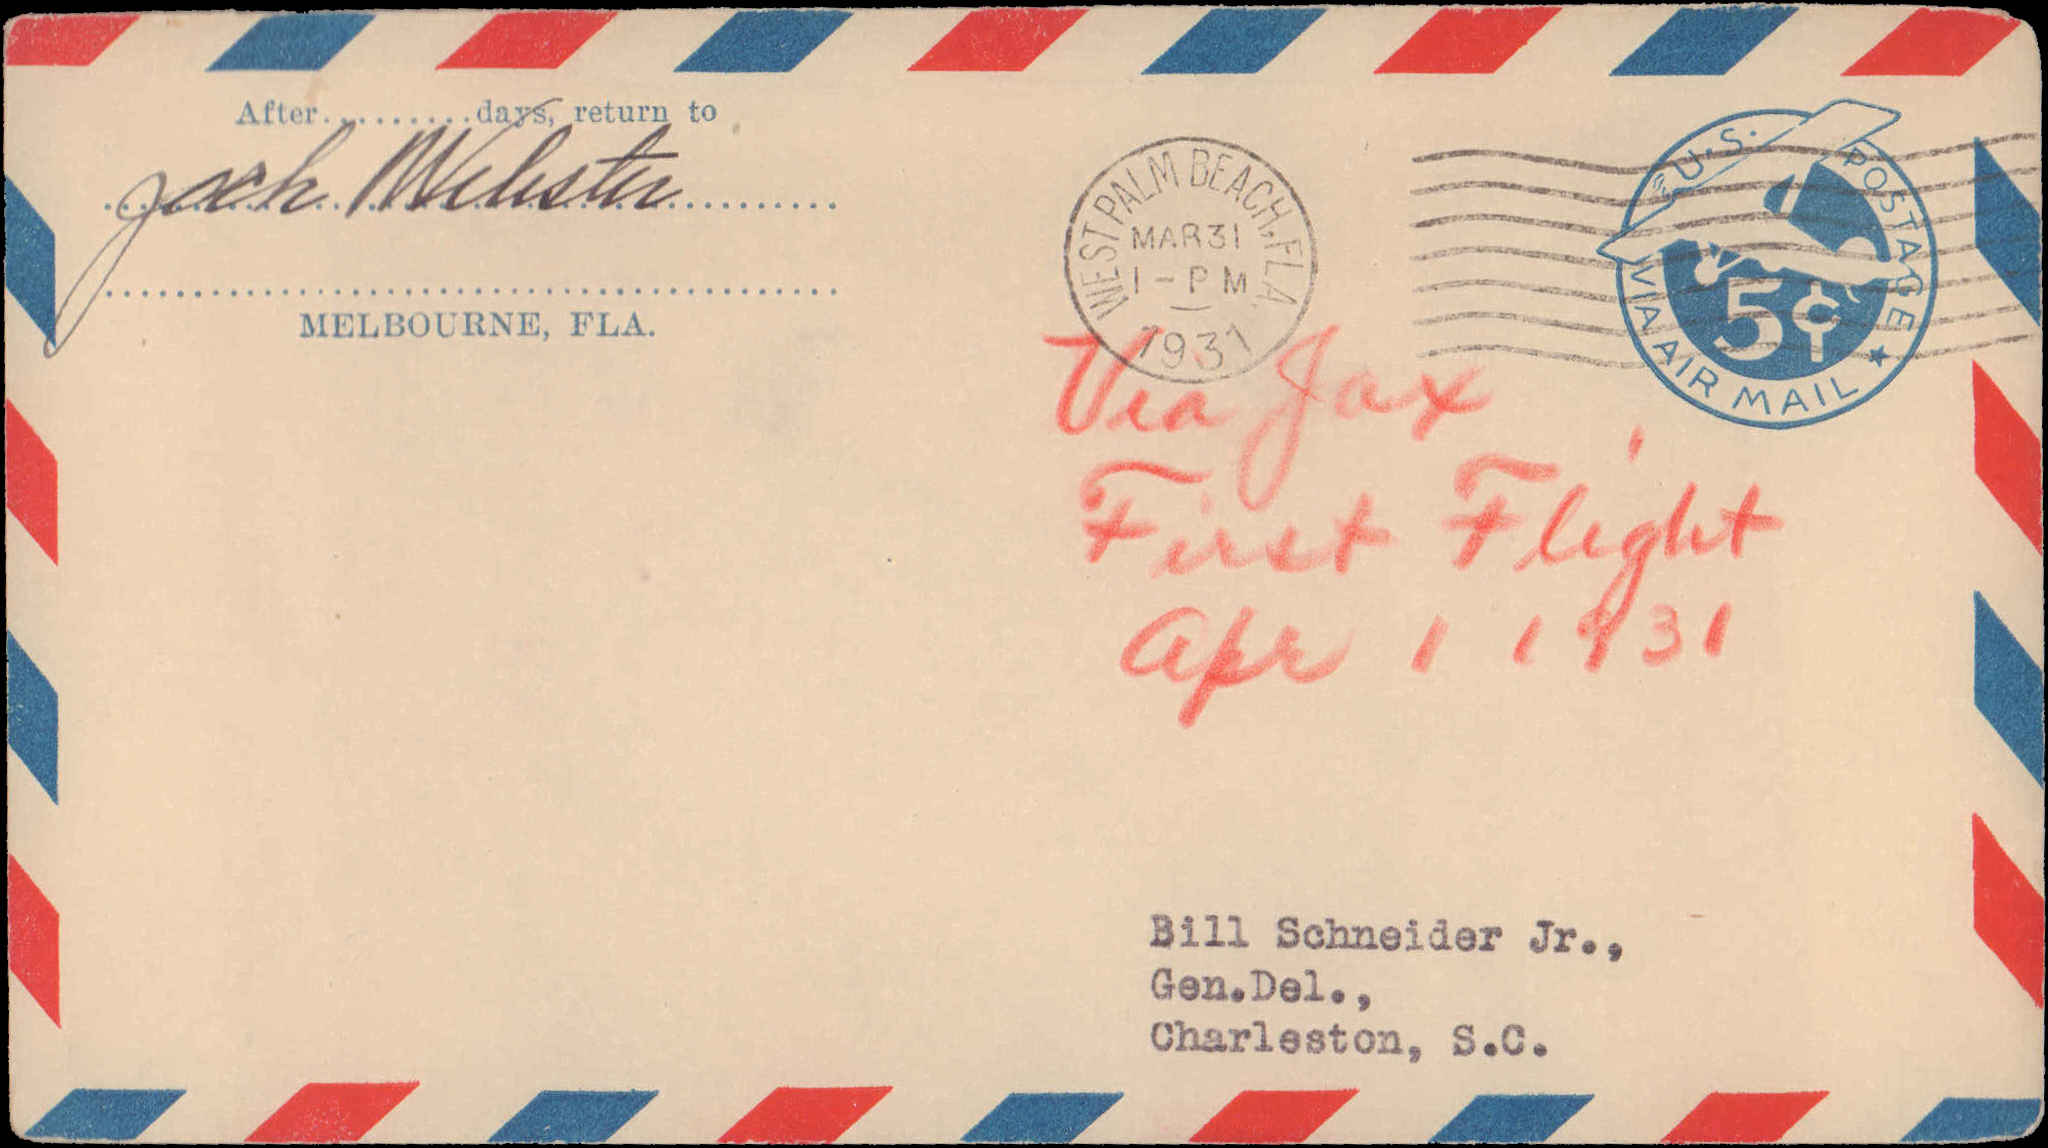 After..........days, return to
Jack Webster
MELBOURNE, FLA.
WEST PALM BEACH, FLA.
MAR 31
1 - PM
1931
U.S. POSTAGE
5¢
VIA AIR MAIL
Via Jax
First Flight
Apr 1 1931
Bill Schneider Jr.,
Gen.Del.,
Charleston, S.C.